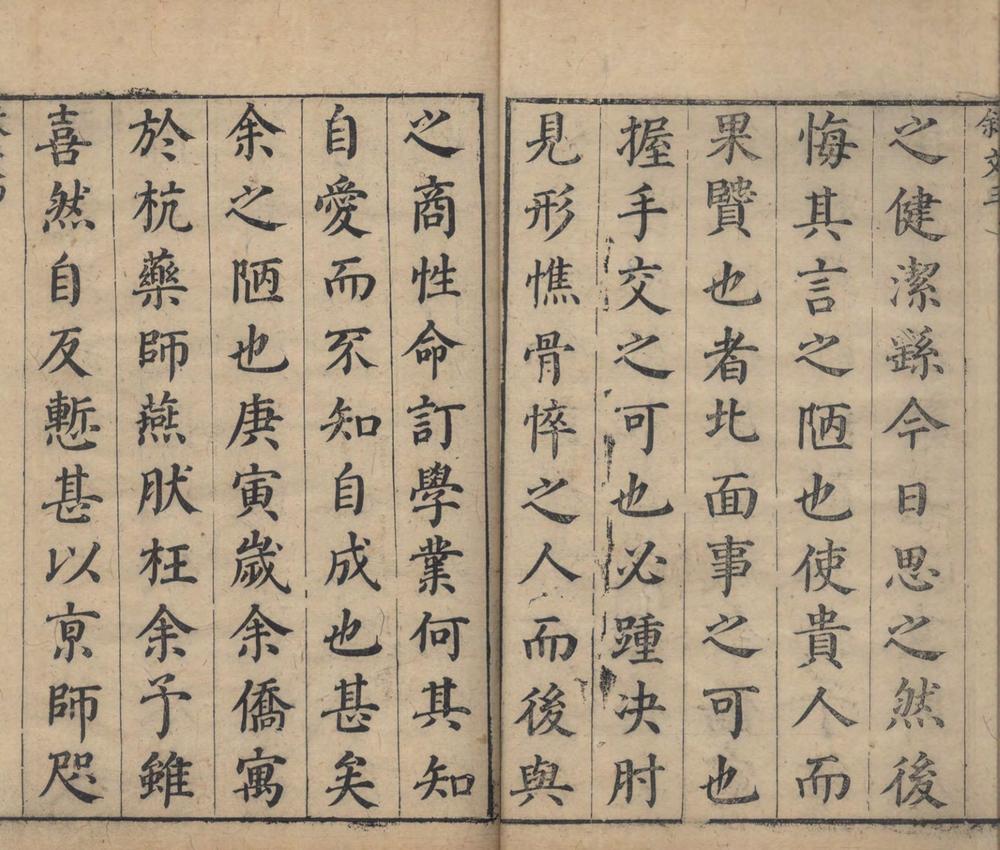 叙文三
之健潔繇今日思之然後
悔其言之陋也使貴人而
果賢也者北面事之可也
握手交之可也必踵决肘
見形憔骨悴之人而後與
之商性命訂學業何其知
自愛而不知自成也甚矣
余之陋也庚寅歲余僑寓
於杭藥師燕肰枉余予雖
喜然自反慙甚以亰師咫